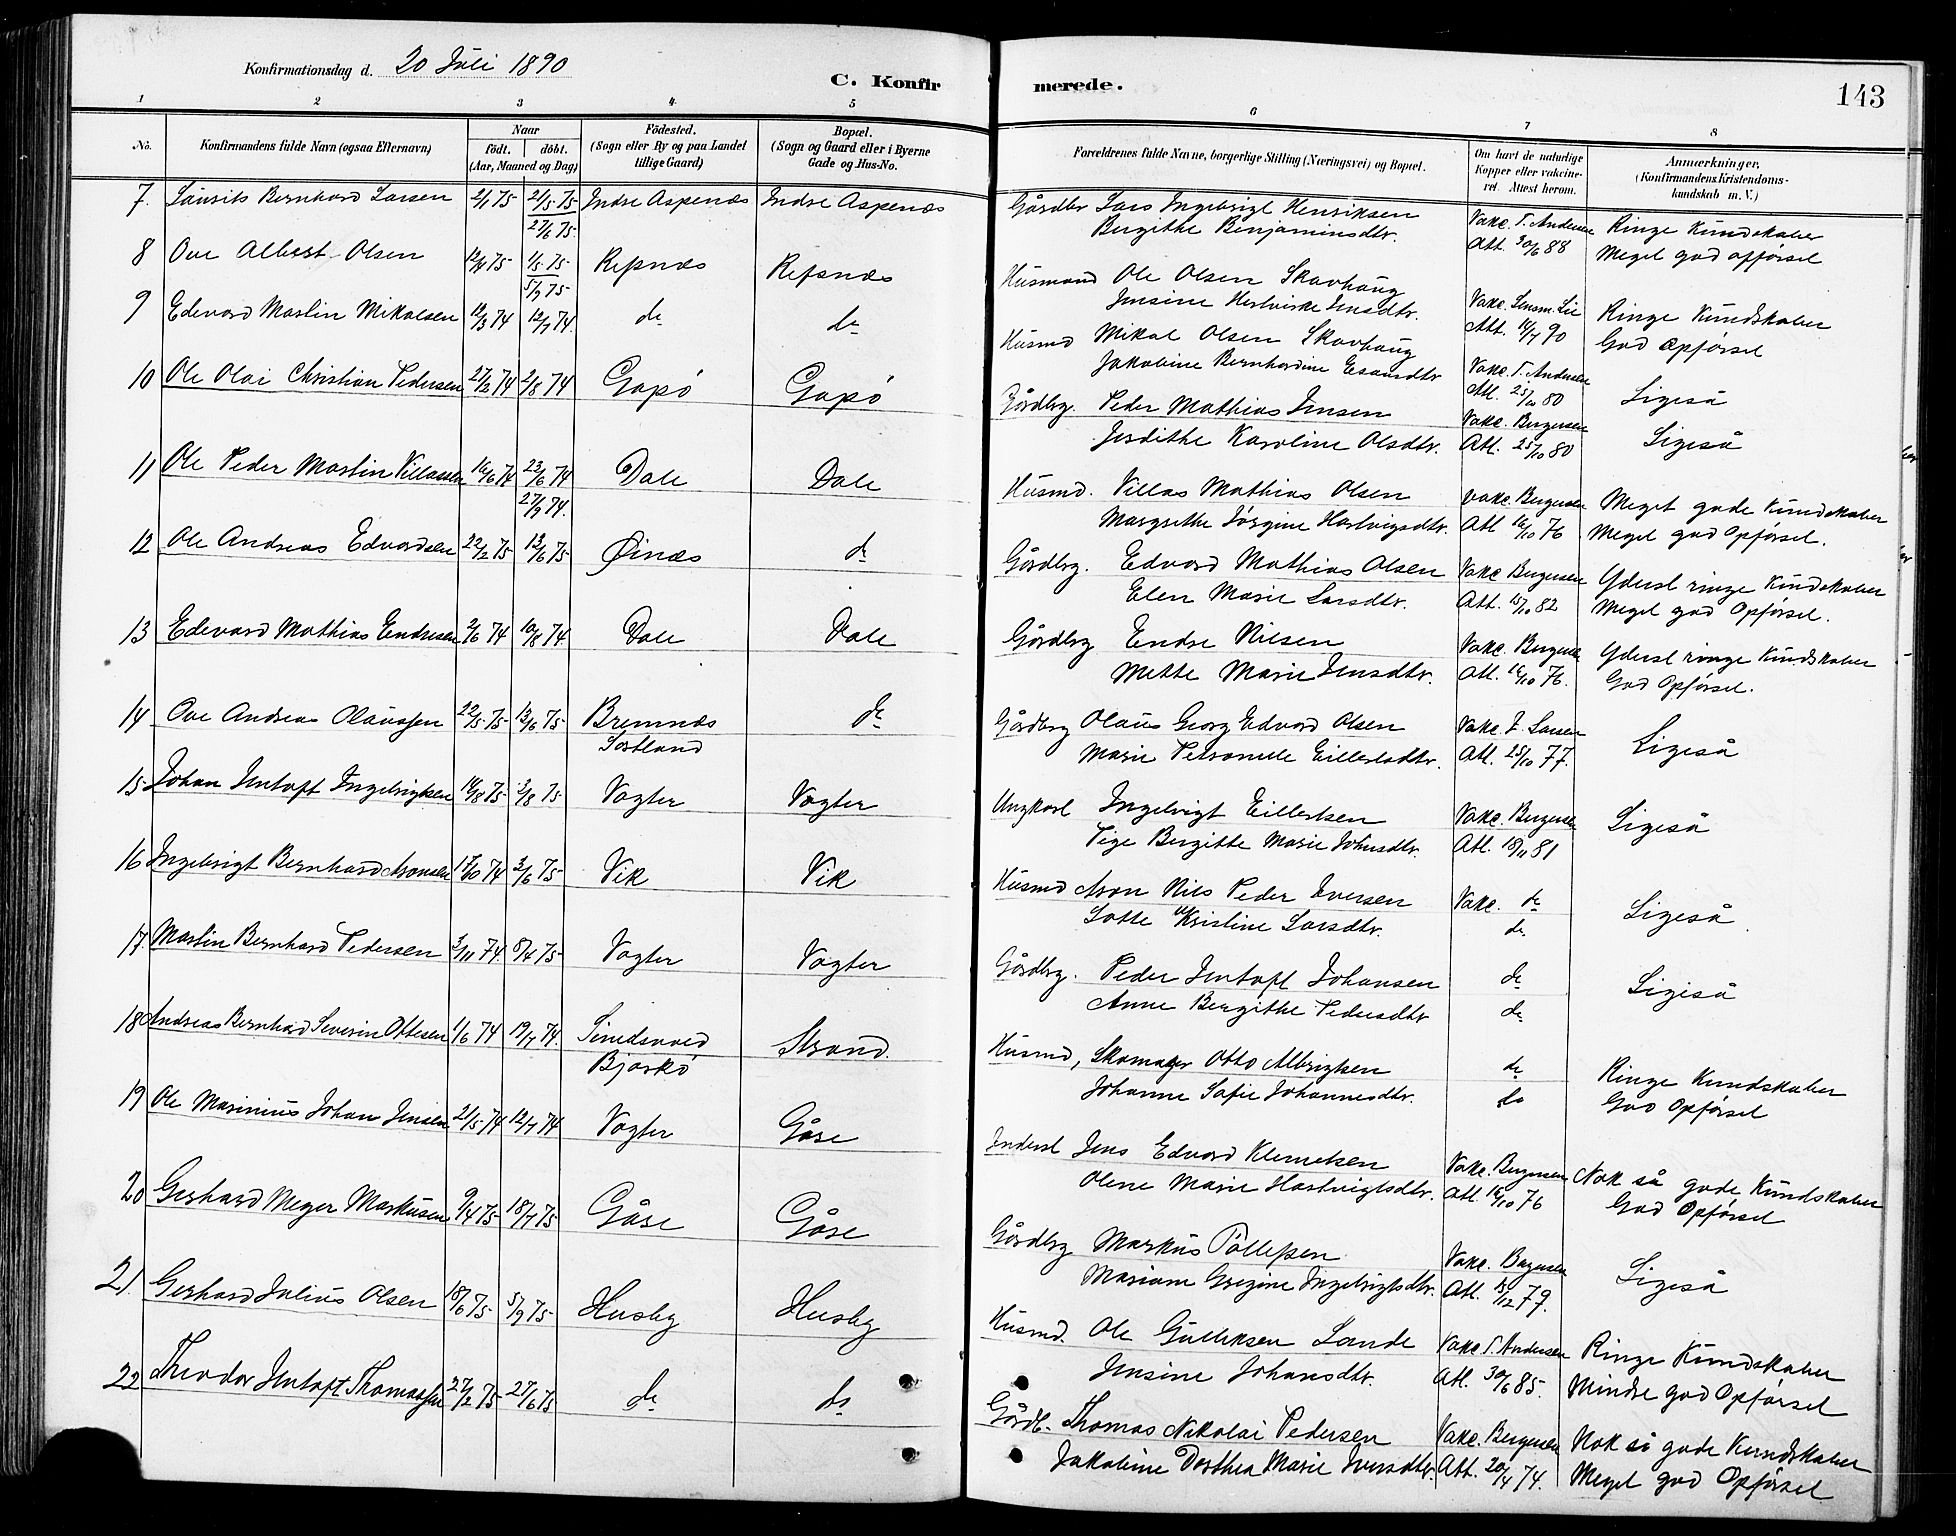 Konfirmationsdag d. 20 Juli 1890
C. Konfirmerede.
143
1 2 3 4 5 6 7 8
No.
Konfirmandens fulde Navn (ogsaa Efternavn)
Naar
födt. döbt.
(Aar, Maaned og Dag)
Födested.
(Sogn eller By og paa Landet
tillige Gaard)
Bopæl.
(Sogn og Gaard eller i Byerne
Gade og Hus-No.
Forældrenes fulde Navne, borgerlige Stilling (Næringsvei) og Bopæl.
Om havt de naturlige
Kopper eller vakcine-
ret. Attest herom.
Anmærkninger,
(Konfirmandens Kristendoms-
kundskab m. V.)
7. Laurits Bernhard Larsen 2/1 75 2/5 75 Indre Aspenæs Indre Aspenæs Gårdbr Lars Ingebrigt Henriksen Vakc. T. Andersen Ringe Kundskaber
27/6 75. Birgithe Benjaminsdtr. Att. 30/6 88 Meget god opførsel
8 Ove Albert Olsen 1/5 75 Refsnæs Refsnæs Husmand Ole Olsen Skavhaug Vakc. Lensm. Lie Ringe Kundskaber
5/9 75 Jensine Jensdtr. God Opførsel
9 Edevard Martin Mikalsen 12/3 74 12/7 74. do do Husmd Mikal Olsen Skavhaug Vakc. T. Andersen Ligeså
Jakobine Bernhardine Esaiasdtr Att. 25/10 80
10 Ole Olai Christian Pedersen 27/2 74 2/8 74 Gapø Gapø Gårdbrg. Peder Mathias Jensen Vakc. Bergersen Ligeså
Jerdithe Karoline Olsdtr. Att. 25/10 80
11 Ole Peder Martin Villassen 16/6 74 23/6 74 Dale Dale Husmd. Villas Mathias Olsen Vakc. Bergersen Meget gode Kundskaber
27/9 74. Margrethe Jørgine Hartvigsdtr. Att 16/10 76 Meget god Opførsel.
12 Ole Andreas Edvardsen 22/2 75 13/6 75 Øinæs do Gårdbrg. Edvard Mathias Olsen Vakc Bergersen Yderst ringe Kundskaber
Elen Marie Larsdtr. Att. 15/10 82 Meget god Opførsel.
13 Edevard Mathias Endresen 2/6 74 10/8 74. Dale Dale Gårdbrg Endre Nilsen Vakc. Bergersen Yderst ringe Kundskaber
Mette Marie Jensdtr. Att. 16/10 76. God Opførsel.
14 Ove Andreas Olaussen 22/5 75 13/6 75 Bremnæs do Gårdbrg Olaus Georg Edvard Olsen Vakc. J. Larsen Ligeså
Sortland Marie Petronelle Eillertsdtr. Att. 25/10 77.
15 Johan Jentoft Ingebrigtsen 2/8 75 Vogter Vogter Ungkarl Ingebrigt Eillertsen Vakc. Bergersen Ligeså
Pige Bergitte Marie Johnsdtr. Att. 18/11 81
16 Ingebrigt Bernhard Aronsen 17/10 74 3/6 75 Vik Vik Husmd Aron Nils Peder Iversen Vakc. do Ligeså
Lotte Kristine Larsdtr. do
17. Martin Bernhard Pedersen 3/11 74 8/4 75 Vogter Vogter Gårdbrg. Peder Jentoft Johansen do Ligeså
Anne Bergithe Pedersdtr do
18 Andreas Bernhard Severin Ottesen 1/6 74 19/7 74. Strand. Husmd, Skomager Otto Albrigtsen do Ringe Kundskaber
Bjarkø Johanne Safie Johannesdtr. do God Opførsel
19 Ole Marinius Johan Jensen 21/5 74 12/7 74 Vogter Gåre Inderst Jens Edvard Klemetsen Vakc. Bergersen Nok så gode Kundskaber
Olene Marie Hartvigtsdtr. Att. 16/10 76 God Opførsel
20 Gerhard Meyer Markusen 9/4 75 18/7 75 Gåre Gåre Gårdbrg Markus Pallesen Vakc. Bergersen Ligeså
Mariane Gregine Ingebrigtsdtr. Att. 15/12 79.
21. Gerhard Julius Olsen 18/6 75 5/9 75 Husby Husby Husmd. Ole Gulliksen Sande Vakc T. Andersen Ringe Kundskaber
Jensine Johansdtr. Att. 30/6 85. Mindre god Opførsel
22 Theodor Jentoft Thomassen 27/2 75 27/6 75 do do Gårdb. Thomas Nikolai Pedersen Vakc. Bergersen Nok så gode Kundskaber
Jakobine Dorthea Marie Iversdtr. Att. 20/4 74. Meget god Opførsel